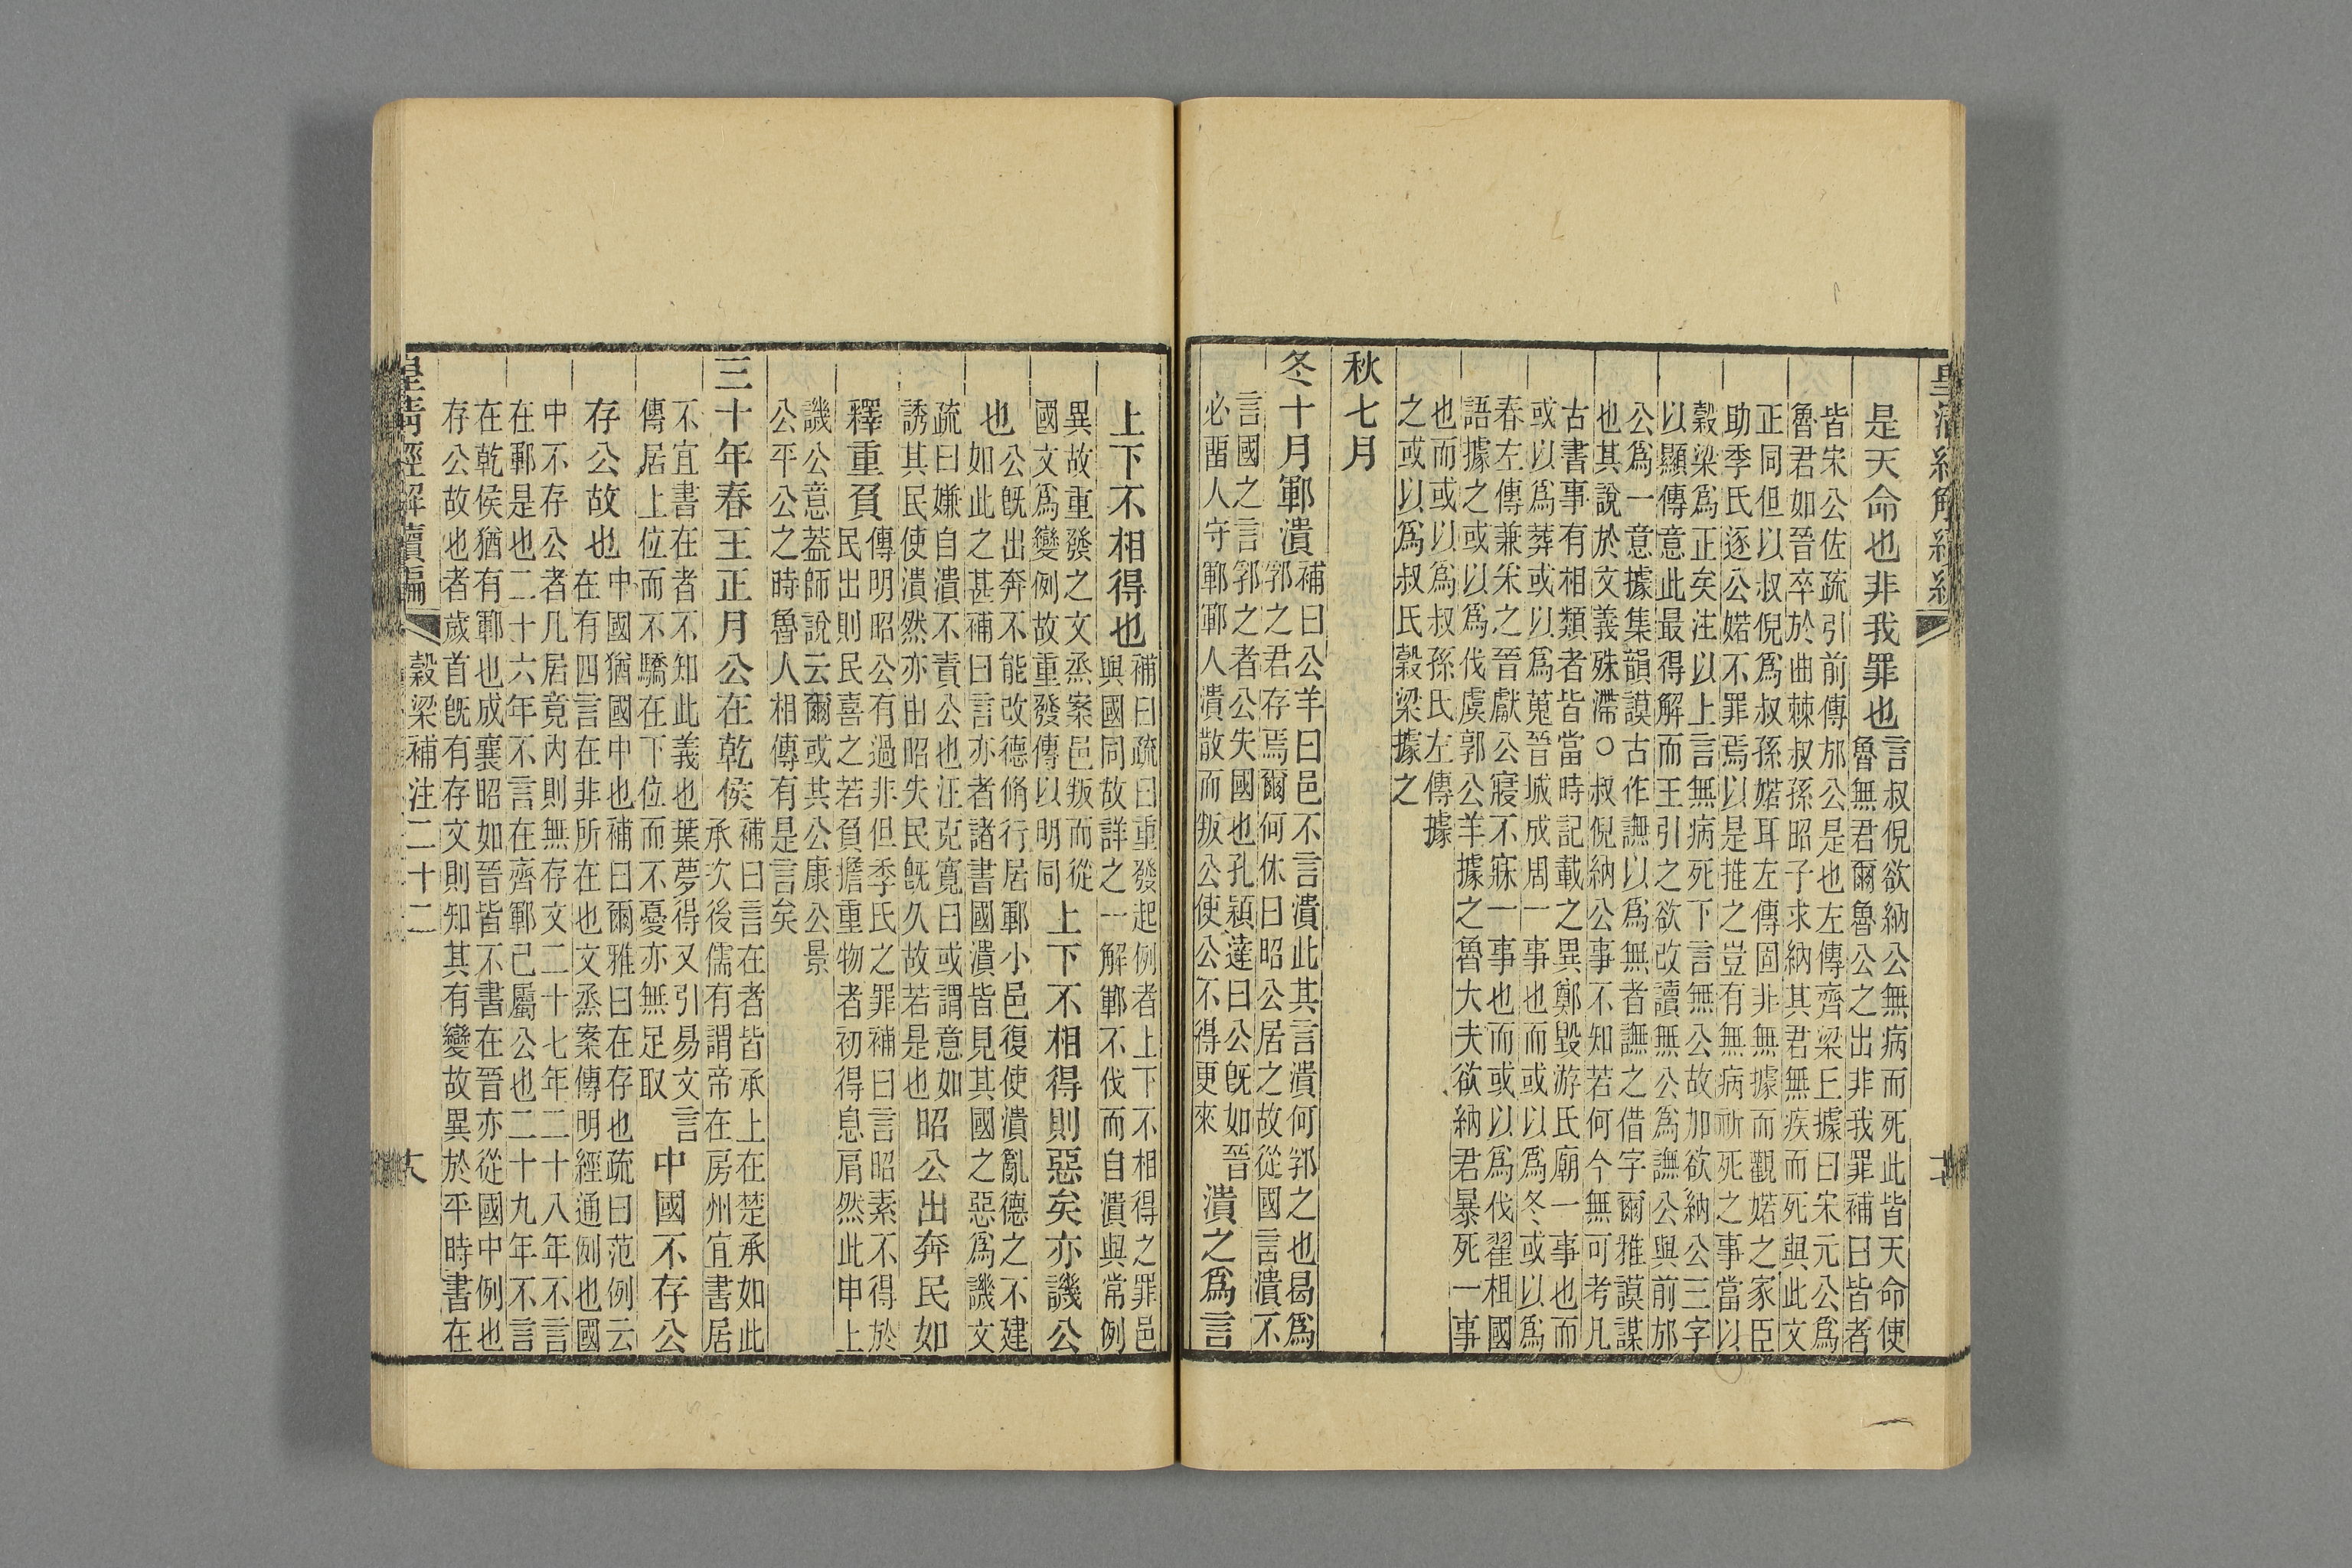 皇清經解續編
是天命也非我罪也言叔倪欲納公無病而死此皆天命使
魯無君爾魯公之出非我罪補曰皆者
皆宋公佐疏引前傳邡公是也左傳齊梁王據曰宋元公爲
魯君如晉卒於曲棘叔孫昭子求納其君無疾而死與此文
正同但以叔倪爲叔孫婼耳左傳固非無據而觀婼之家臣
助季氏逐公婼不罪焉以是推之豈有無病祈死之事當以
穀梁爲正矣注以上言無病死下言無公故加欲納公三字
以顯傳意此最得解而王引之欲改讀無公爲譕公與前邡
公爲一意據集韻謨古作譕以爲無者譕之借字爾雅謨謀
也其說於文義殊滯○叔倪納公事不知若何今無可考凡
古書事有相類者皆當時記載之異鄭毀游氏廟一事也而
或以爲葬或以爲蒐晉城成周一事也而或以爲冬或以爲
春左傳兼釆之晉獻公寢不寐一事也而或以爲伐翟柤國
語據之或以爲伐虞郭公羊據之魯大夫欲納君暴死一事
也而或以爲叔孫氏左傳據
之或以爲叔氏穀梁據之
秋七月
冬十月鄆潰補曰公羊曰邑不言潰此其言潰何郛之也曷爲
郛之君存焉爾何休曰昭公居之故從國言潰不
言國之言郛之者公失國也孔穎達曰公旣如晉
必畱人守鄆鄆人潰散而叛公使公不得更來
潰之爲言
上下不相得也補曰疏曰重發起例者上下不相得之罪邑
與國同故詳之一解鄆不伐而自潰與常例
異故重發之文烝案邑叛而從
國文爲變例故重發傳以明同
上下不相得則惡矣亦譏公
也公旣出奔不能改德脩行居鄆小邑復使潰亂德之不建
如此之甚補曰言亦者諸書國潰皆見其國之惡爲譏文
疏曰嫌自潰不責公也汪克寬曰或謂意如
誘其民使潰然亦由昭失民旣久故若是也
昭公出奔民如
釋重負傳明昭公有過非但季氏之罪補曰言昭素不得於
民出則民喜之若負擔重物者初得息肩然此申上
譏公意葢師說云爾或其公康公景
公平公之時魯人相傳有是言矣
三十年春王正月公在乾侯補曰言在者皆承上在楚承如此
承次後儒有謂帝在房州宜書居
不宜書在者不知此義也葉夢得又引易文言
傳居上位而不驕在下位而不憂亦無足取
中國不存公
存公故也中國猶國中也補曰爾雅曰在存也疏曰范例云
在有四言在非所在也文烝案傳明經通例也國
中不存公者凡居竟內則無存文二十七年二十八年不言
在鄆是也二十六年不言在齊鄆已屬公也二十九年不言
在乾侯猶有鄆也成襄昭如晉皆不書在晉亦從國中例也
存公故也者歲首旣有存文則知其有變故異於平時書在
皇清經解續編
穀梁補注二十二